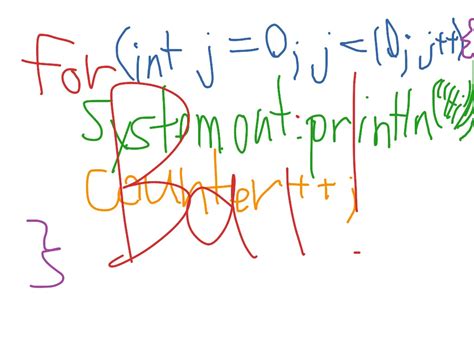 for (int j = 0; j < 10; j++) {
System.out.println("
counter++;
}